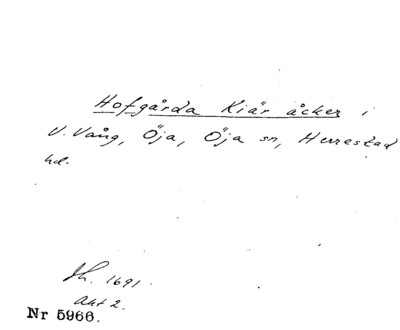 Hofgårda Kiär åcker i
V. Vång, Öja, Öja sn, Herrestad
hd.
Sk. 1691.
Akt 2.
Nr 5966.